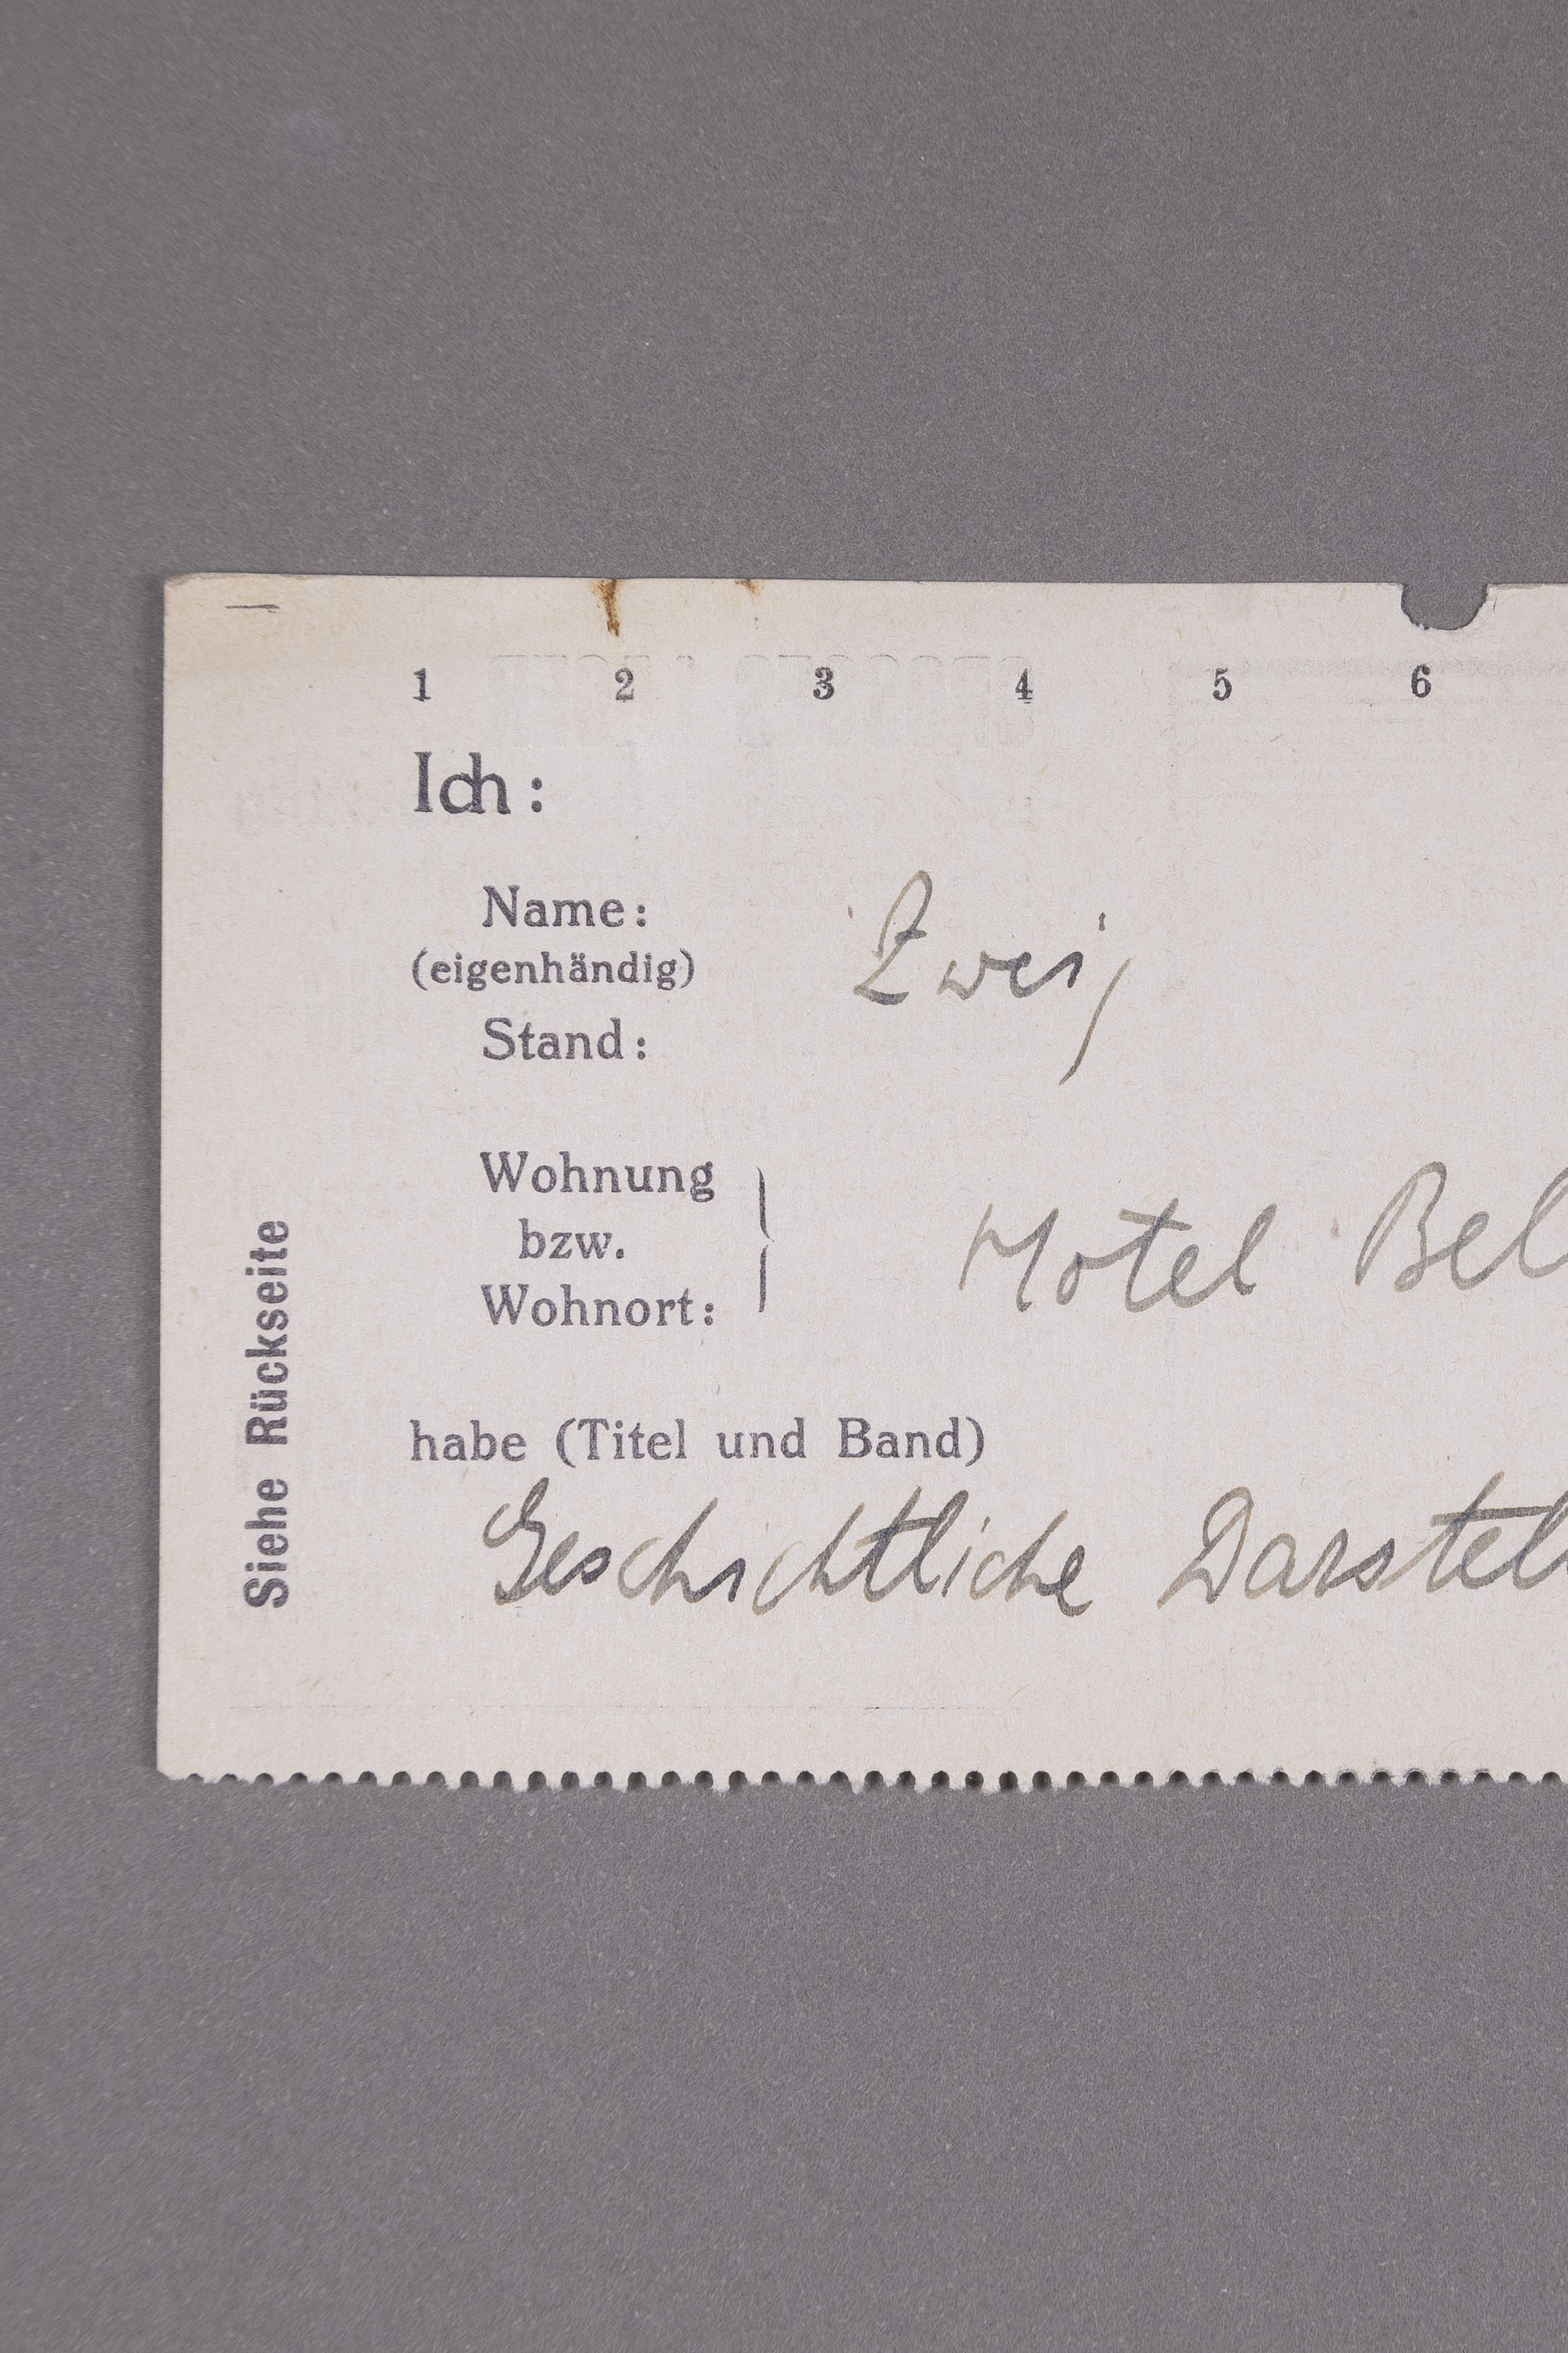 1 2 3 4 5 6
Ich:
Name: Zweig
(eigenhändig)
Stand:
Wohnung
bzw.
Wohnort:
Hotel Bel
habe (Titel und Band)
Geschichtliche Darstell
Siehe Rückseite